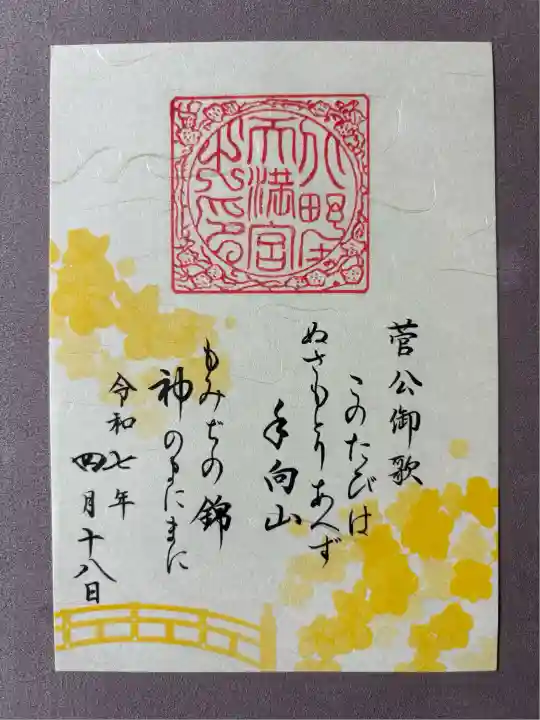 天満宮
菅公御歌
このたびは
ぬさもとりあへず
手向山
もみぢの錦
神のまにまに
令和七年
四月十八日